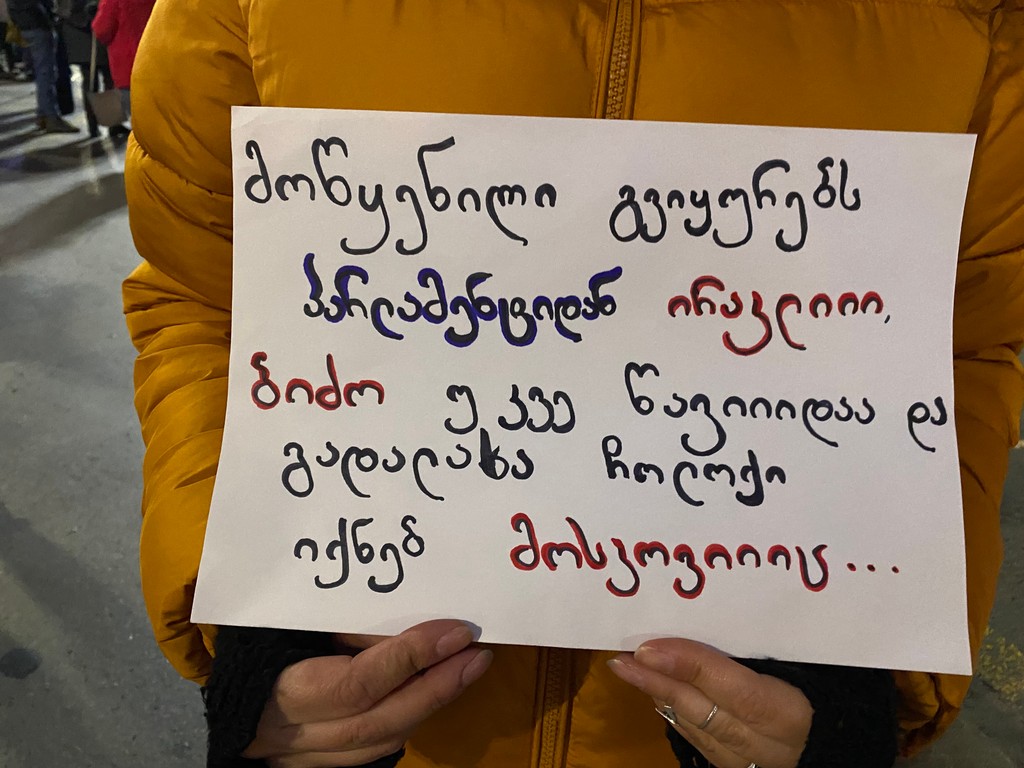 მოწყენილი გვიყურებს
პარლამენტიდან ირაკლიიი,
ბიძო უკვე წავიიიდაა და
გადალახა ჩოლოქი
იქნებ მოსკოვიიიც...